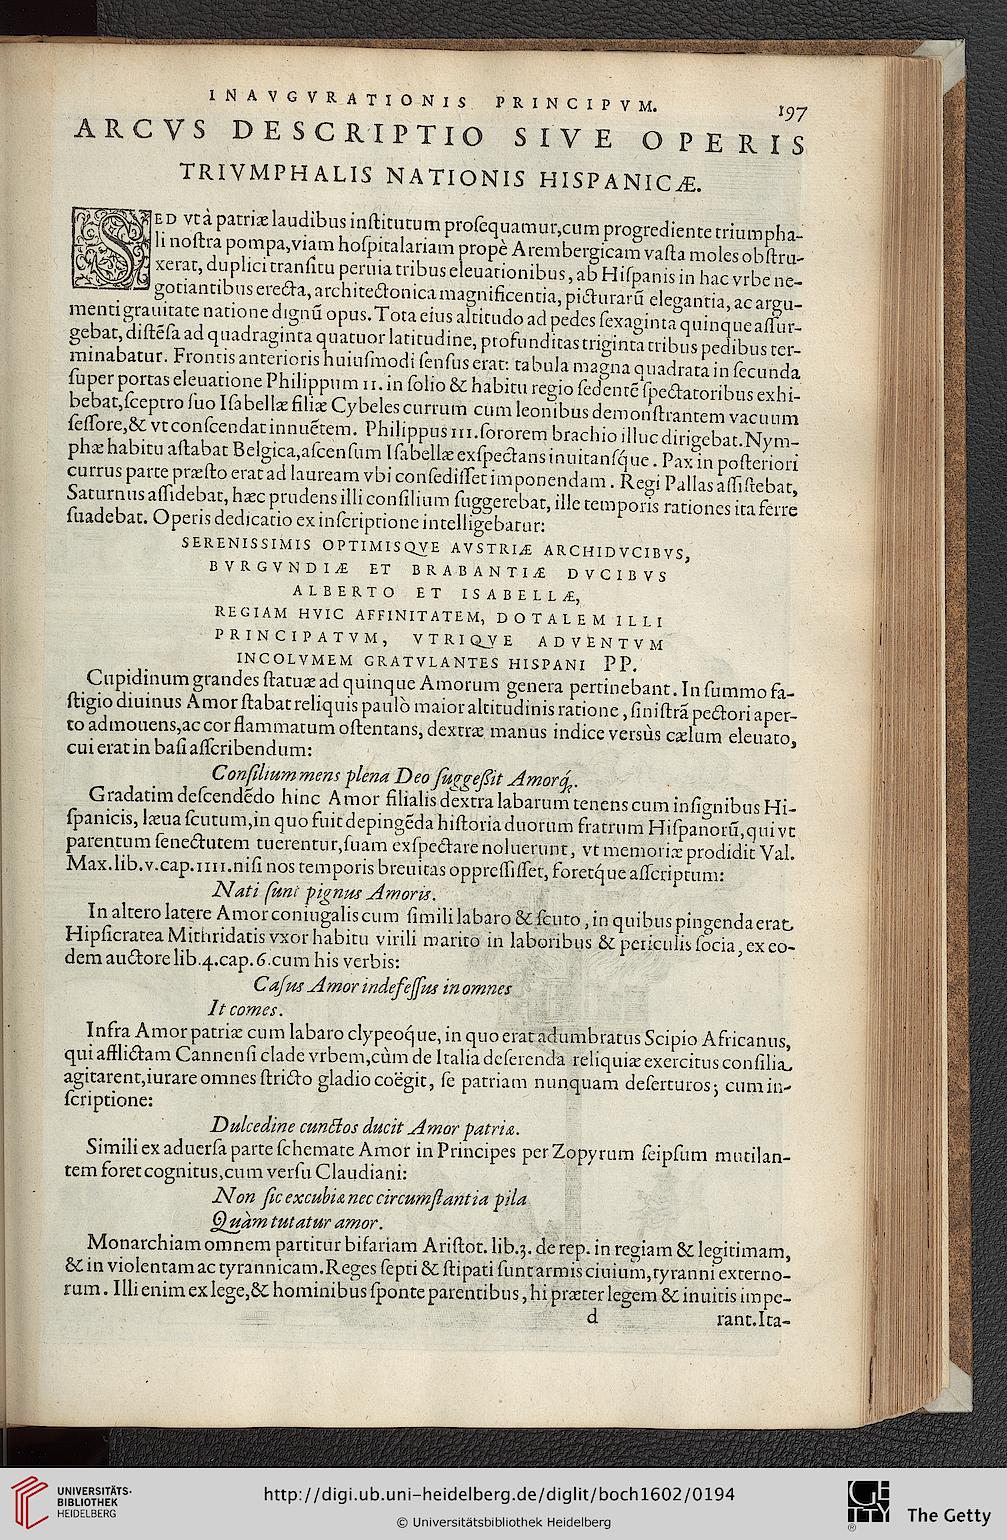 INAVGVRATIONIS PRINCIPVM. 197
ARCVS DESCRIPTIO SIVE OPERIS
TRIVMPHALIS NATIONIS HISPANICÆ.
SED vt à patriæ laudibus inſtitutum proſequamur, cum progrediente triumpha-
li noſtra pompa, viam hoſpitalariam propè Arembergicam vaſta moles obſtru-
xerat, duplici tranſitu peruia tribus eleuationibus, ab Hiſpanis in hac vrbe ne-
gotiantibus erecta, architectonica magnificentia, picturarū elegantia, ac argu-
menti grauitate natione dignū opus. Tota eius altitudo ad pedes ſexaginta quinque aſſur-
gebat, diſtēſa ad quadraginta quatuor latitudine, profunditas triginta tribus pedibus ter-
minabatur. Frontis anterioris huiuſmodi ſenſus erat: tabula magna quadrata in ſecunda
ſuper portas eleuatione Philippum II. in ſolio & habitu regio ſedentē ſpectatoribus exhi-
bebat, ſceptro ſuo Iſabellæ filiæ Cybeles currum cum leonibus demonſtrantem vacuum
ſeſſore, & vt conſcendat innuētem. Philippus III. ſororem brachio illuc dirigebat. Nym-
phæ habitu aſtabat Belgica, aſcenſum Iſabellæ exſpectans inuitanſq́ue. Pax in poſteriori
currus parte præſto erat ad lauream vbi conſediſſet imponendam. Regi Pallas aſſiſtebat,
Saturnus aſſidebat, hæc prudens illi conſilium ſuggerebat, ille temporis rationes ita ferre
ſuadebat. Operis dedicatio ex inſcriptione intelligebatur:
SERENISSIMIS OPTIMISQVE AVSTRIÆ ARCHIDVCIBVS,
BVRGVNDIÆ ET BRABANTIÆ DVCIBVS
ALBERTO ET ISABELLÆ,
REGIAM HVIC AFFINITATEM, DOTALEM ILLI
PRINCIPATVM, VTRIQVE ADVENTVM
INCOLVMEM GRATVLANTES HISPANI PP.
Cupidinum grandes ſtatuæ ad quinque Amorum genera pertinebant. In ſummo fa-
ſtigio diuinus Amor ſtabat reliquis paulò maior altitudinis ratione, ſiniſtrā pectori aper-
to admouens, ac cor flammatum oſtentans, dextræ manus indice versùs cælum eleuato,
cui erat in baſi aſſcribendum:
Conſilium mens plena Deo ſuggeßit Amorq́;.
Gradatim deſcendēdo hinc Amor filialis dextra labarum tenens cum inſignibus Hi-
ſpanicis, læua ſcutum, in quo fuit depingēda hiſtoria duorum fratrum Hiſpanorū, qui vt
parentum ſenectutem tuerentur, ſuam exſpectare noluerunt, vt memoriæ prodidit Val.
Max. lib. v. cap. IIII. niſi nos temporis breuitas oppreſſiſſet, foretq́ue aſſcriptum:
Nati ſunt pignus Amoris.
In altero latere Amor coniugalis cum ſimili labaro & ſcuto, in quibus pingenda erat
Hipſicratea Mithridatis vxor habitu virili marito in laboribus & periculis ſocia, ex eo-
dem auctore lib. 4. cap. 6. cum his verbis:
Caſus Amor indefeſſus in omnes
It comes.
Infra Amor patriæ cum labaro clypeoq́ue, in quo erat adumbratus Scipio Africanus,
qui afflictam Cannenſi clade vrbem, cùm de Italia deſerenda reliquiæ exercitus conſilia
agitarent, iurare omnes ſtricto gladio coëgit, ſe patriam nunquam deſerturos; cum in-
ſcriptione:
Dulcedine cunctos ducit Amor patriæ.
Simili ex aduerſa parte ſchemate Amor in Principes per Zopyrum ſeipſum mutilan-
tem foret cognitus, cum verſu Claudiani:
Non ſic excubiæ nec circumſtantia pila
Quàm tutatur amor.
Monarchiam omnem partitur bifariam Ariſtot. lib. 3. de rep. in regiam & legitimam,
& in violentam ac tyrannicam. Reges ſepti & ſtipati ſunt armis ciuium, tyranni externo-
rum. Illi enim ex lege, & hominibus ſponte parentibus, hi præter legem & inuitis impe-
d rant. Ita-
UNIVERSITÄTS-
BIBLIOTHEK
HEIDELBERG
http://digi.ub.uni-heidelberg.de/diglit/boch1602/0194
© Universitätsbibliothek Heidelberg
GETTY
®
The Getty